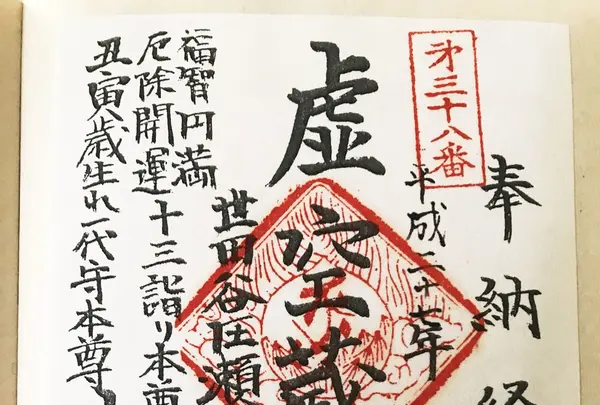 奉納経
第三十八番
平成二十七年
虚空蔵
世田谷区瀬
福智円満
厄除開運十三詣り本尊
丑寅歳生れ一代守本尊